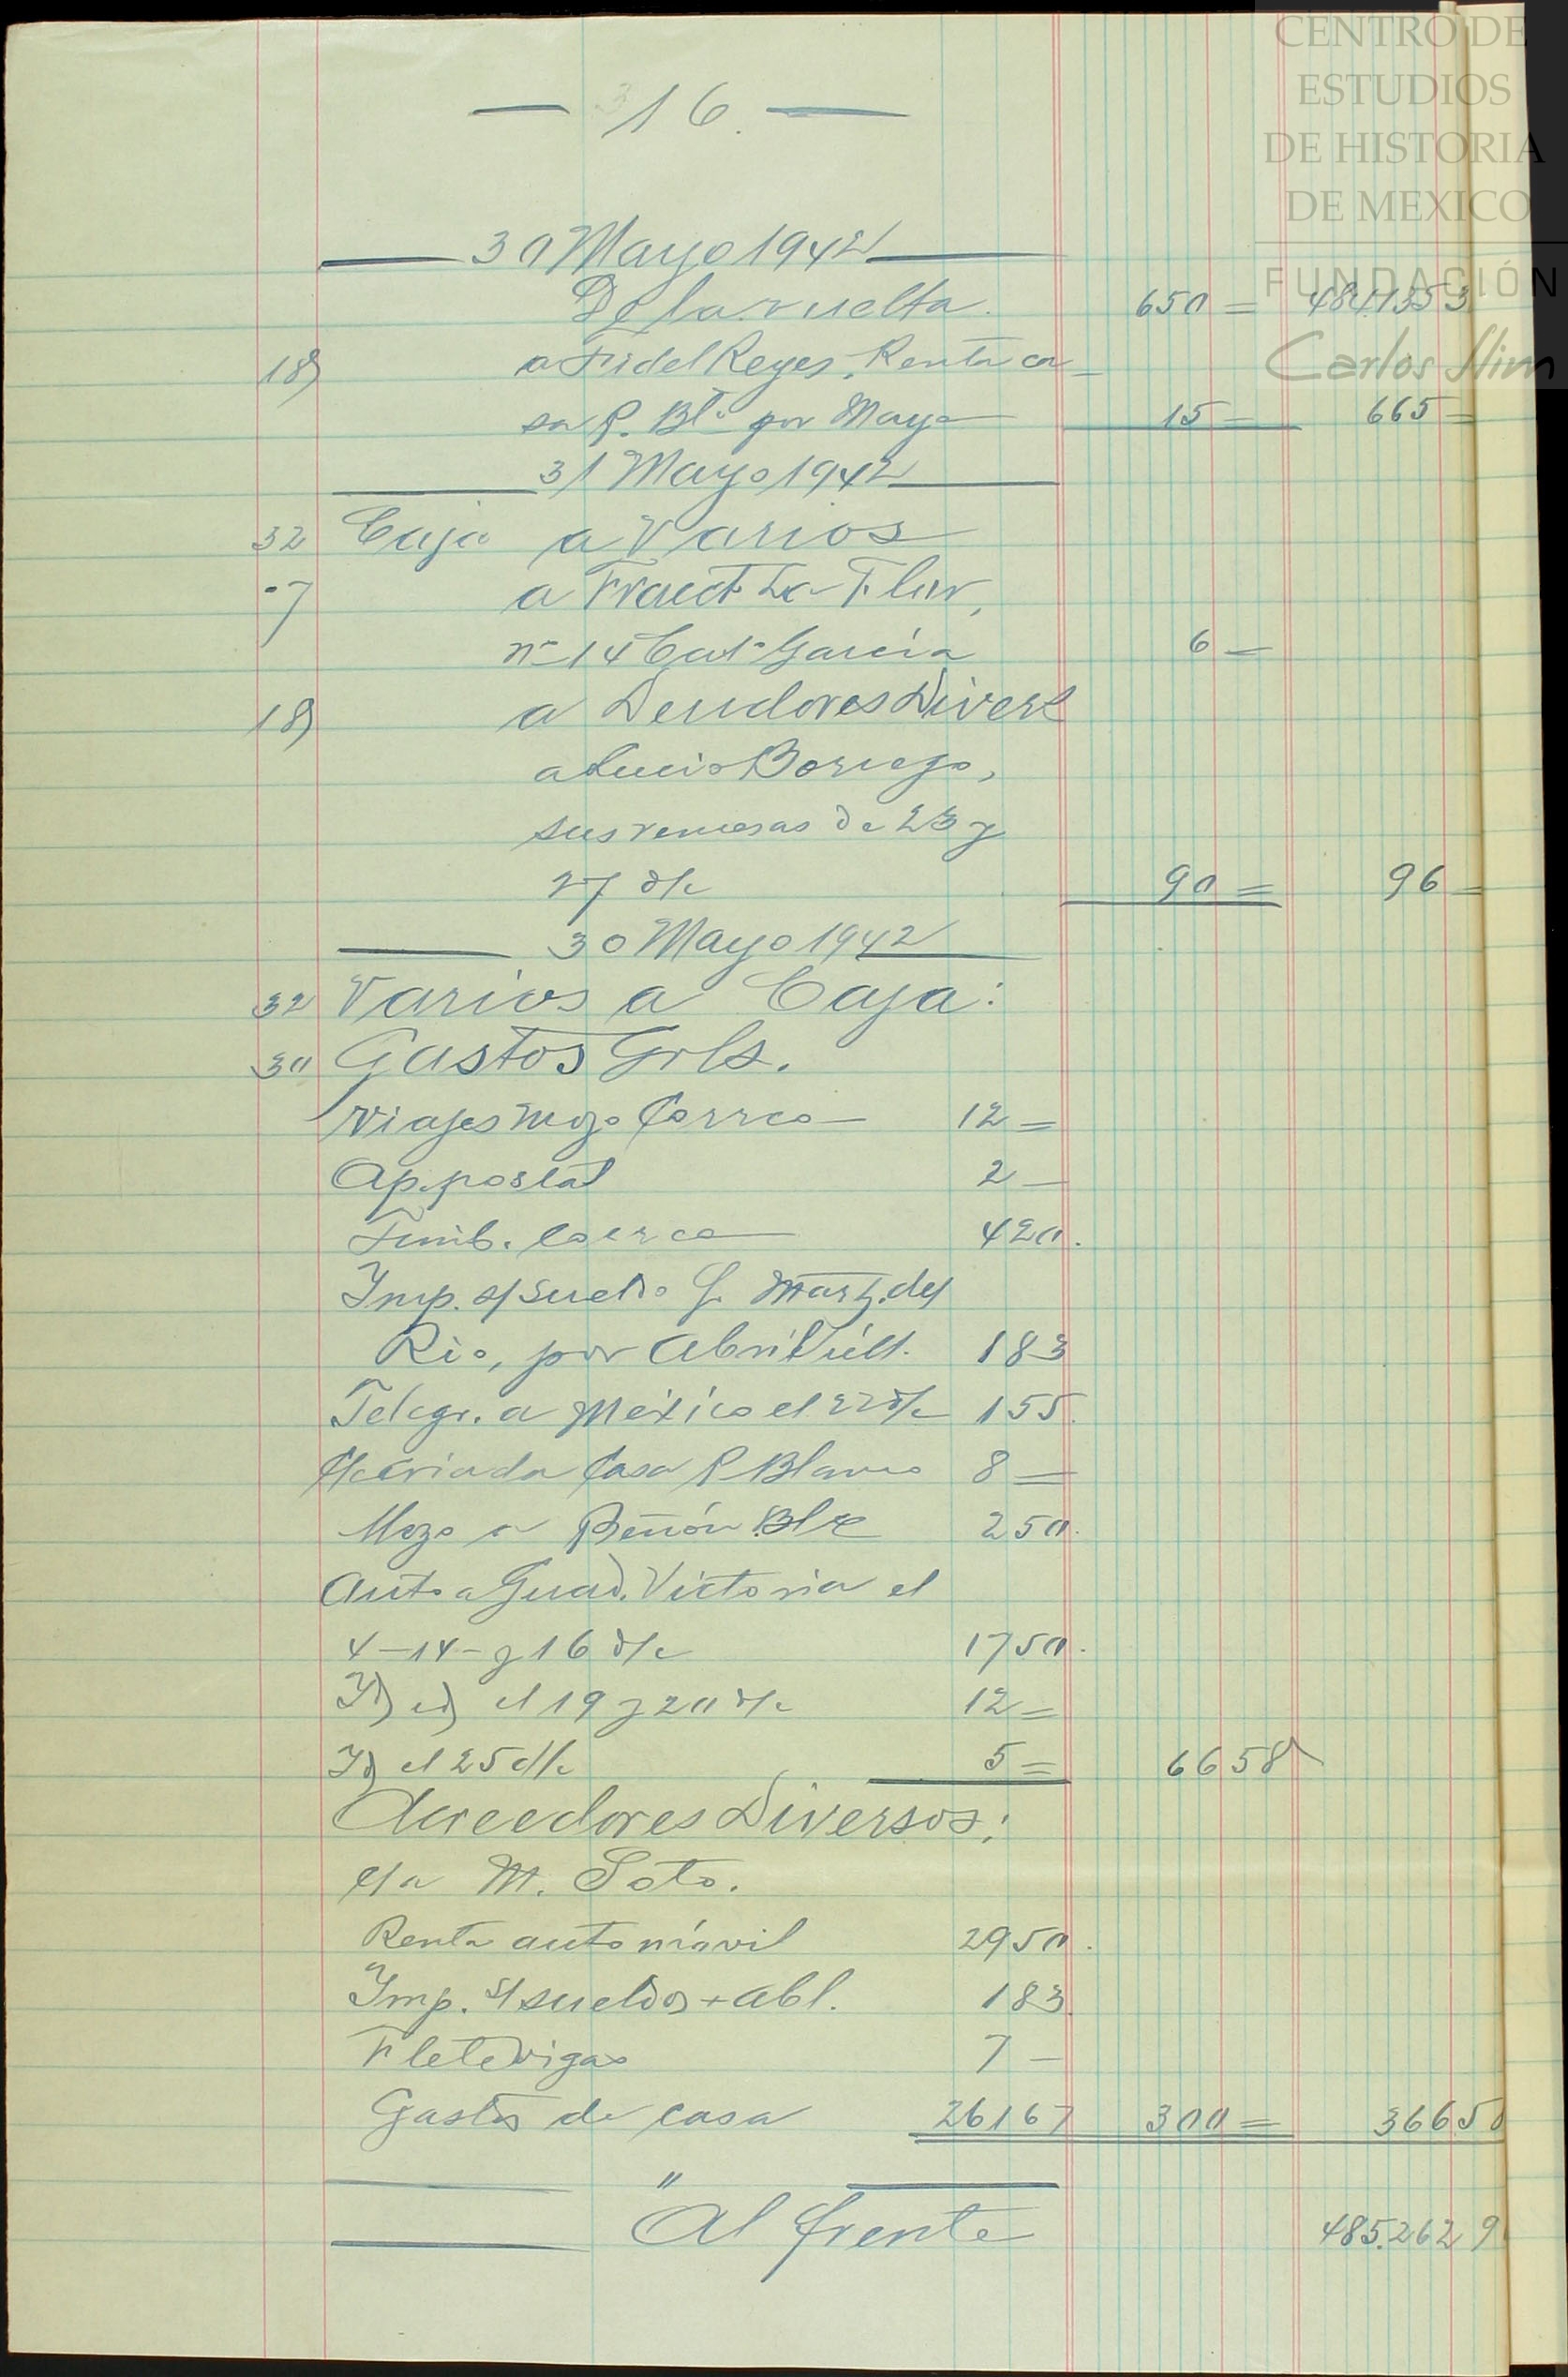 CENTRO DE
ESTUDIOS
DE HISTORIA
DE MEXICO
FUNDACIÓN
Carlos Slim
— 16. —
30 Mayo 1942
De la vuelta. 650 = 484.1353
18 a Fidel Reyes, Renta ca-
sa P. Blo por Mayo 15 — 665 —
31 Mayo 1942
32 Caja a Varios
7 a Fracct. La Flor,
no 14 Cat. García 6 —
18 a Deudores Divers
a Lucio Borrego,
sus remesas de 23 y
27 d/c 90 = 96 —
30 Mayo 1942
32 Varios a Caja:
30 Gastos Grls.
Viajes mozo Correo 12 =
Ap. postal 2 —
Timb. 420.
Imp. s/ sueldo G. Martz. del
Río, por Abril últ. 183
Telegr. a México el 22 d/c 155.
Criada Casa P Blanco 8 —
Mozo a Peñón Blco 250.
Auto a Guad. Victoria el
4 - 14 - y 16 d/c 1750.
Id id el 19 y 20 d/c 12 =
Id el 25 d/c 5 = 6658
Acreedores Diversos:
c/a M. Soto.
Renta automóvil 2950.
Imp. s/ sueldos + Abl. 183.
Flete vigas 7 —
Gastos de casa 26167 300 = 36658
"
Al frente 485.2629